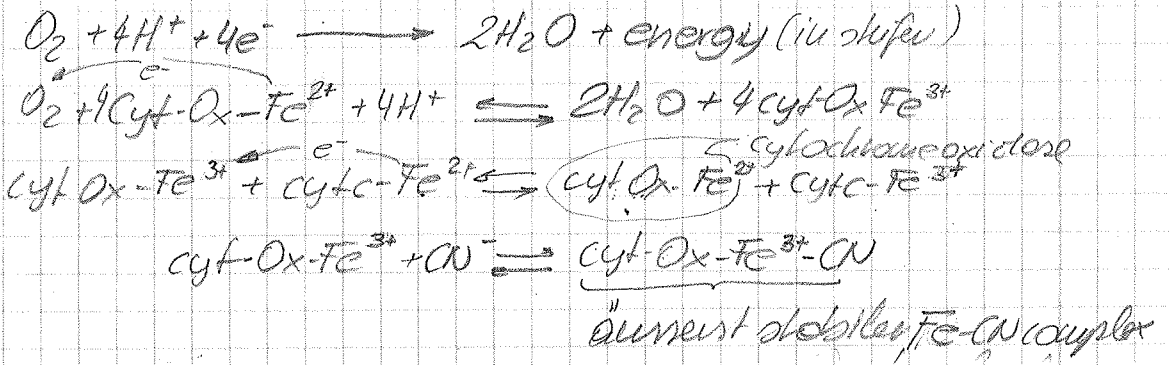 O₂ + 4H⁺ + 4e⁻ ⟶ 2H₂O + energy (in stufen)
e⁻
O₂ + 4Cyt-Ox-Fe²⁺ + 4H⁺ ⇌ 2H₂O + 4cyt-Ox Fe³⁺
e⁻ Cytochromeoxidase
cyt Ox-Fe³⁺ + cytc-Fe²⁺ ⇌ cyt.Ox-Fe²⁺ + Cytc-Fe³⁺
cyt-Ox-Fe³⁺ + CN⁻ ⇌ cyt-Ox-Fe³⁺-CN
äusserst stabiler Fe-CN complex